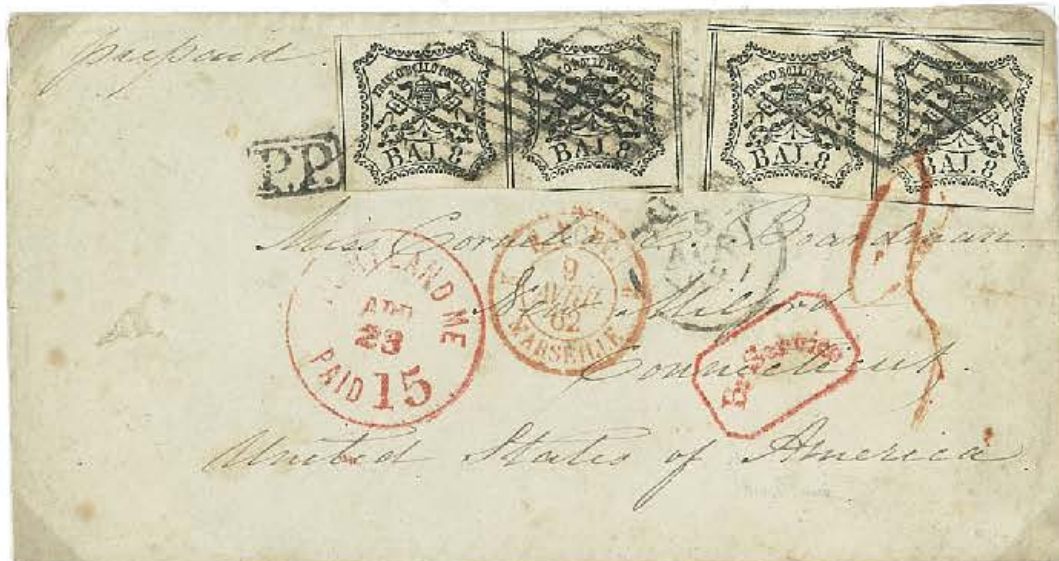 prepaid
FRANCO BOLLO POSTALE
BAJ. 8
FRANCO BOLLO POSTALE
BAJ. 8
FRANCO BOLLO POSTALE
BAJ. 8
BAJ. 8
P.P.
Miss Cornelia C. Boardman
New Milford
Connecticut.
United States of America
LAND ME
APR
23
PAID 15
9
AVRIL
62
MARSEILLE
Br. Service